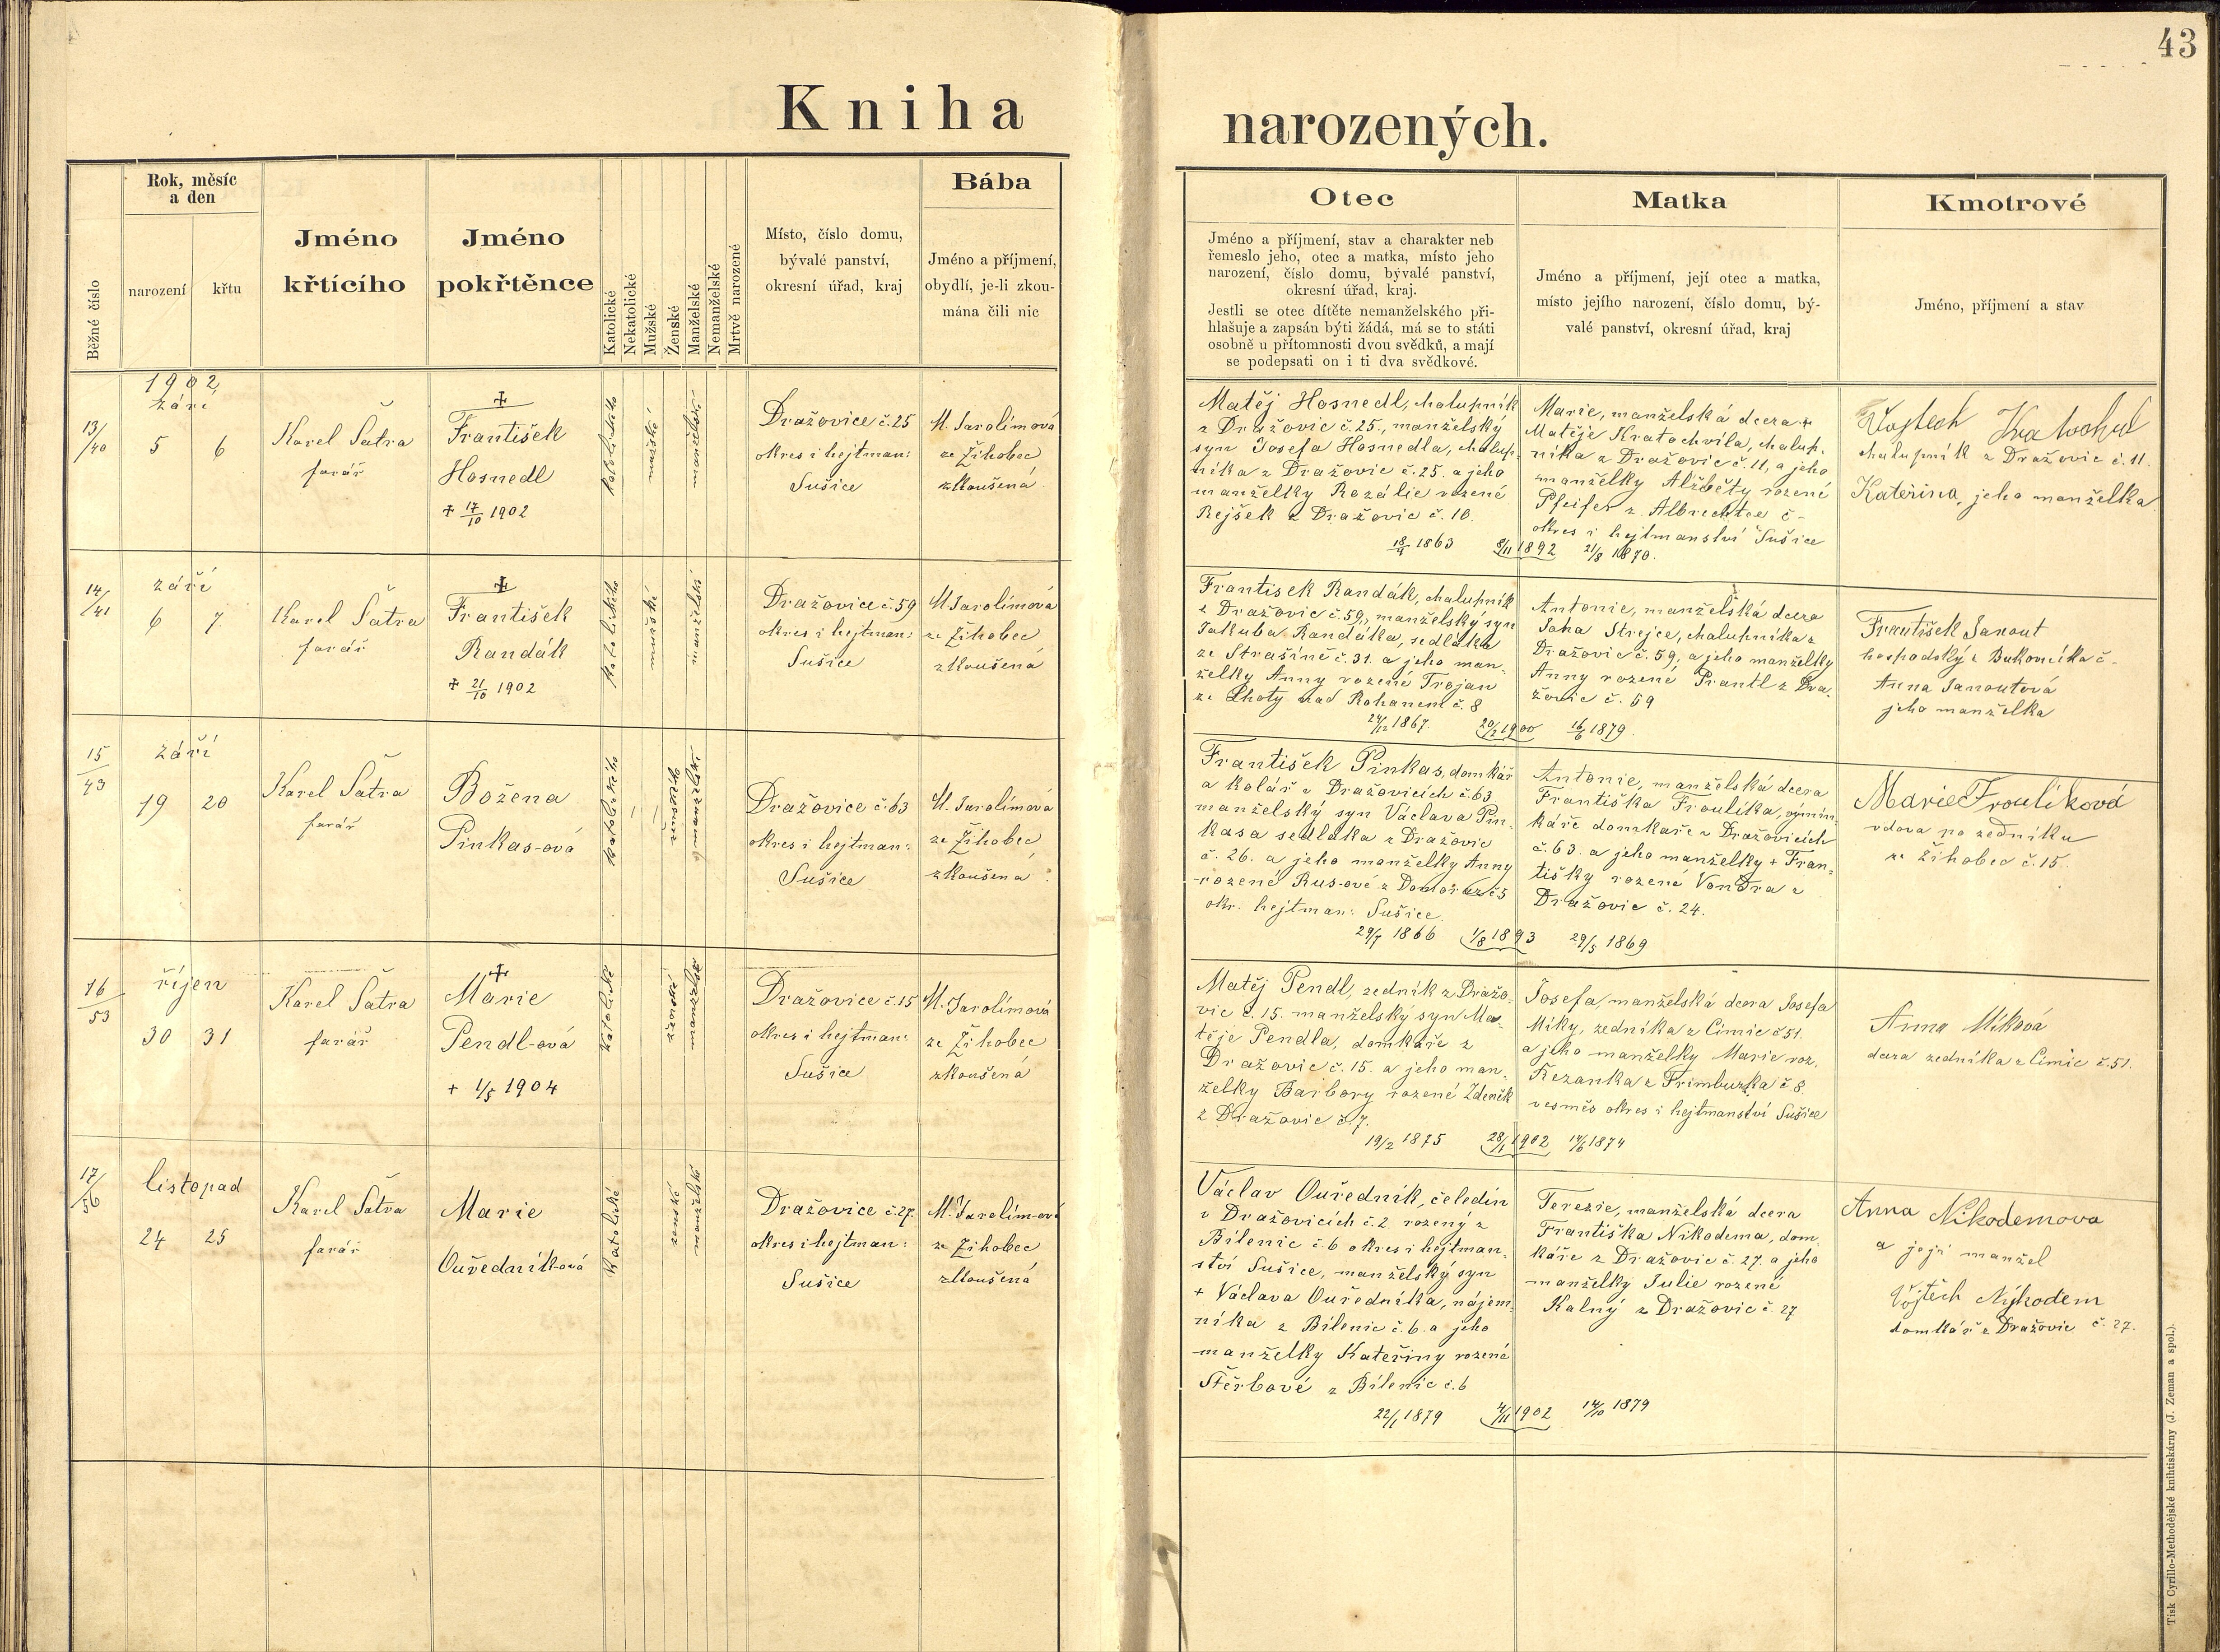 43
Kniha narozených.
Běžné číslo
Rok, měsíc
a den
narození
křtu
Jméno
křtícího
Jméno
pokřtěnce
Katolické
Nekatolické
Mužské
Ženské
Manželské
Nemanželské
Mrtvě narozené
Místo, číslo domu,
bývalé panství,
okresní úřad, kraj
Bába
Jméno a příjmení,
obydlí, je-li zkou-
mána čili nic
Otec
Jméno a příjmení, stav a charakter neb
řemeslo jeho, otec a matka, místo jeho
narození, číslo domu, bývalé panství,
okresní úřad, kraj.
Jestli se otec dítěte nemanželského při-
hlašuje a zapsán býti žádá, má se to státi
osobně u přítomnosti dvou svědků, a mají
se podepsati on i ti dva svědkové.
Matka
Jméno a příjmení, její otec a matka,
místo jejího narození, číslo domu, bý-
valé panství, okresní úřad, kraj
Kmotrové
Jméno, příjmení a stav
13/40
1902
září
5 6
Karel Šatra
farář
+
František
Hosnedl
+ 17/10 1902
katolického
mužské
manželské
Dražovice č. 25
okres i hejtman:
Sušice
M. Jarolímová
ze Žihobec
zkoušená
Matěj Hosnedl, chalupník
z Dražovic č. 25., manželský
syn Josefa Hosnedla, chalup-
níka z Dražovic č. 25. a jeho
manželky Rozálie rozené
Rejšek z Dražovic č. 10.
1863
8/11 1892
21/8 1870.
Marie, manželská dcera +
Matěje Kratochvila, chalup-
níka z Dražovic č. 11, a jeho
manželky Alžběty rozené
Pfeifer z Albrechtce č -
okres i hejtmanství Sušice
Vojtech Kratochvl
chalupník z Dražovic č. 11.
Kateřina, jeho manželka
14/41
září
6 7.
Karel Šatra
farář
+
František
Randák
+ 21/10 1902
katolického
mužské
manželské
Dražovice č. 59
okres i hejtman:
Sušice
M. Jarolímová
ze Žihobec
zkoušená
Frantisek Randák, chalupník
z Dražovic č. 59., manželský syn
Jakuba Randáka, sedláka
ze Strašíně č. 31. a jeho man-
želky Anny rozené Trojan
ze Lhoty nad Rohanem č. 8
24/12 1867.
20/2 1900
16/6 1879.
Antonie, manželská dcera
Jana Strejce, chalupníka z
Dražovic č. 59, a jeho manželky
Anny rozené Prantl z Dra-
žovic č. 59
František Janout
hospodský z Bukovníka č -
Anna Janoutová
jeho manželka
15/43
září
19 20
Karel Šatra
farář
Božena
Pinkas-ová
katolického
ženské
manželské
Dražovice č. 63
okres i hejtman:
Sušice
M. Jarolímová
ze Žihobec
zkoušená
František Pinkas, domkář
a kolář v Dražovicích č. 63
manželský syn Václava Pin-
kasa sedláka z Dražovic
č. 26. a jeho manželky Anny
rozené Rus-ové z Domoraz č 5
okr. hejtman: Sušice.
29/7 1866
1/8 1893
29/5 1869
Antonie, manželská dcera
Františka Froulíka, výmin-
káře domkaře v Dražovicích
č. 63. a jeho manželky + Fran-
tišky rozené Vondra z
Dražovic č. 24.
Marie Froulíková
vdova po zedníku
ze Žihobec č. 15.
16/53
říjen
30 31
Karel Šatra
farář
+
Marie
Pendl-ová
+ 1/5 1904
katolické
ženské
manželské
Dražovice č. 15
okres i hejtman:
Sušice
M. Jarolímová
ze Žihobec
zkoušená
Matěj Pendl, zedník z Dražo-
vic č. 15. manželský syn Ma-
těje Pendla, domkáře z
Dražovic č. 15. a jeho man-
želky Barbory rozené Zdeněk
z Dražovic č. 7.
19/2 1875
28/1 1902
14/6 1874
Josefa, manželská dcera Josefa
Míky, zedníka z Čimic č 51.
a jeho manželky Marie roz.
Řezanka z Frimburka č 8
vesměs okres i hejtmanství Sušice
Anna Míková
dcera zedníka z Čimic č. 51.
17/56
listopad
24 25
Karel Šatra
farář
Marie
Ouředník-ová
Katolické
ženské
manželské
Dražovice č. 27.
okres i hejtman:
Sušice
M. Jarolím-ová
ze Žihobec
zkoušená
Václav Ouředník, čeledín
v Dražovicích č. 2. rozený z
Bílenic č 6 okres i hejtman-
ství Sušice, manželský syn
+ Václava Ouředníka, nájem-
níka z Bílenic č. 6. a jeho
manželky Kateřiny rozené
Štěrbové z Bílenic č. 6
22/1 1879
4/11 1902
14/10 1879
Terezie, manželská dcera
Františka Nikodema, dom-
káře z Dražovic č. 27. a jeho
manželky Julie rozené
Kalný z Dražovic č. 27
Anna Nikodemova
a její manžel
Vojtěch Nykodem
domkář z Dražovic č. 27.
Tisk Cyrillo-Methodějské knihtiskárny (J. Zeman a spol.).